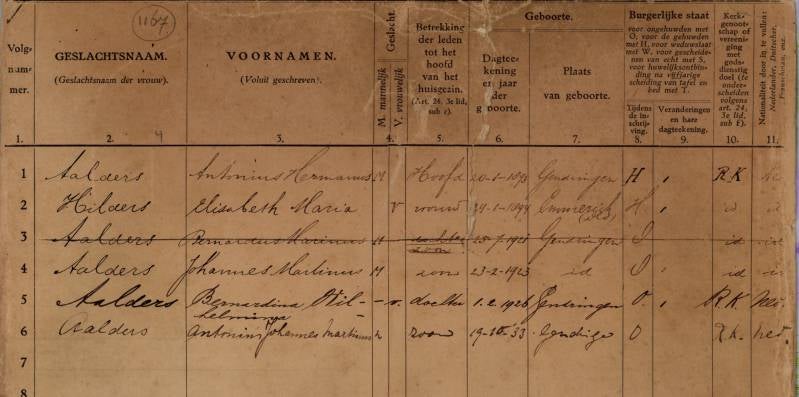 1167
Volg-
num-
mer.
GESLACHTSNAAM.
(Geslachtsnaam der vrouw).
VOORNAMEN.
(Voluit geschreven).
M. mannelijk
V. vrouwelijk
Geslacht.
Betrekking
der leden
tot het
hoofd
van het
huisgezin.
(Art. 24, 3e lid,
sub c).
Geboorte.
Dagtee-
kening
en jaar
der
geboorte.
Plaats
van geboorte.
Burgerlijke staat
voor ongehuwden met
O, voor de gehuwden
met H, voor weduwstaat
met W, voor gescheide-
nen van echt met S,
voor huwelijksontbin-
ding na vijfjarige
scheiding van tafel en
bed met T.
Tijdens
de in-
schrij-
ving.
Veranderingen
en hare
dagteekening.
Kerk-
genoot-
schap of
vereeni-
ging
met
gods-
dienstig
doel (te
onder-
scheiden
volgens
art. 24,
3e lid,
sub E).
Nationaliteit door in te vullen:
Nederlander, Duitscher,
Franschman, enz.
1. 2. 4 3. 4. 5. 6. 7. 8. 9. 10. 11.
1 Aalders Antonius Hermanus M Hoofd Gendringen H R.K
2 Hilders Elisabeth Maria v vrouw Emmerich H. id
3 Aalders Bernardus Martinus M zoon Gendringen O id
4 Aalders Johannes Martinus M zoon 23-2-1923 id O id
5 Aalders Bernardina Wil- v. dochter 1.2.1926 Gendringen O. R.K Ned.
helmina
6 Aalders Antonius Johannes Martinus zoon Gendringen O R.K. ned.
7
8